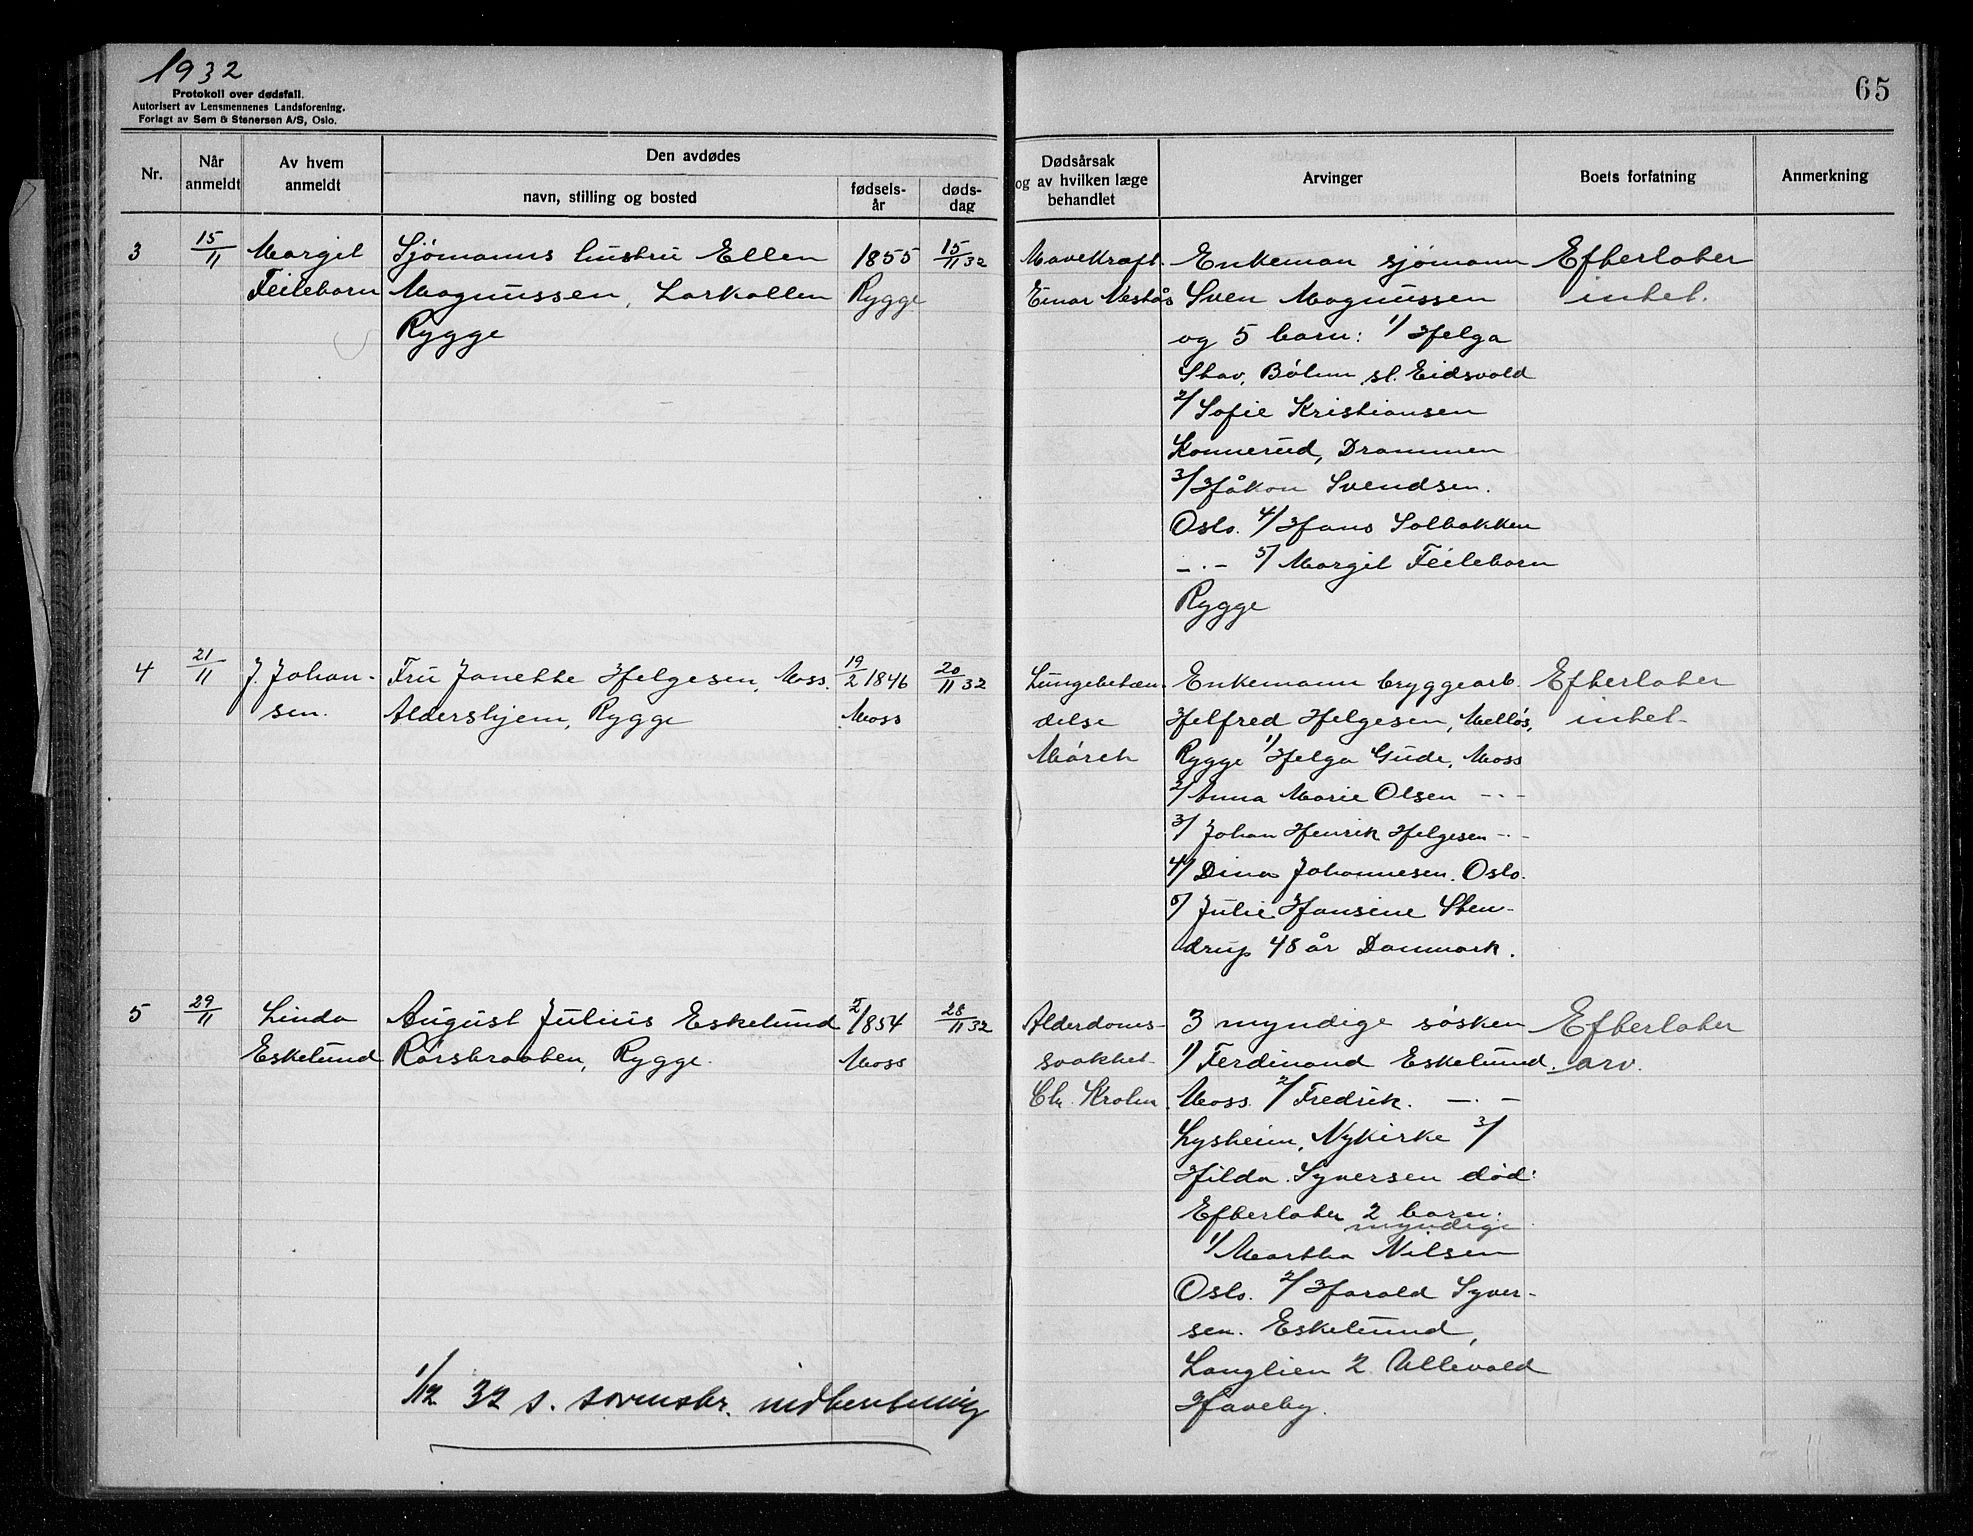 1932
65
Protokoll over dødsfall.
Autorisert av Lensmennenes Landsforening.
Forlagt av Sem & Stenersen A/S, Oslo.
Nr.
Når anmeldt
Av hvem anmeldt
Den avdødes
navn, stilling og bosted
fødsels-år
døds-dag
Dødsårsak
og av hvilken læge
behandlet
Arvinger
Boets forfatning
Anmerkning
3
15/11
Margit
Feileborn
Sjømanns hustru Ellen
Magnussen, Larkollen
Rygge
1855
Rygge
15/11 32
Mavekræft.
Einar Nestås
Enkeman sjømann
Sven Magnussen
og 5 barn: 1/ Helga
Skav, Bølun st. Eidsvold
2/ Sofie Kristiansen
Konnerud, Drammen
3/ Håkon Svendsen.
Oslo. 4/ Hans Solbakken
-.- 5/ Margit Feileborn
Rygge
Efterlater
intet.
4
21/11
J. Johan-
sen.
Fru Janette Helgesen, Moss.
Aldershjem, Rygge
19/2 1846
Moss
20/11 32
Lungebetæn-
delse
Mørch
Enkemann bryggearb.
Helfred Helgesen, Melløs,
Rygge 1/ Helga Gude, Moss
2/ Anna Marie Olsen -.-
3/ Johan Henrik Helgesen -.-
4/ Dina Johannesen. Oslo.
5/ Julie Hansine Sten-
drup 48 år Danmark.
Efterlater
intet.
5
29/11
Linda
Eskelund
August Julius Eskelund
Rørsbraaten, Rygge.
1854
Moss
28/11 32
Alderdoms-
svakhet
Chr. Krohn.
3 myndige søsken
1/ Ferdinand Eskelund.
Moss. 2/ Fredrik. -.-
Lysheim, Nykirke 3/
Hilda Syversen død:
Efterlater 2 barn:
myndige
1/ Martha Nilsen
Oslo. 2/ Harald Syver-
sen. Eskelund,
Langlien 2 Ullevold
Haveby.
Efterlater
arv.
1/12 32 s. sorenskr. indberetning